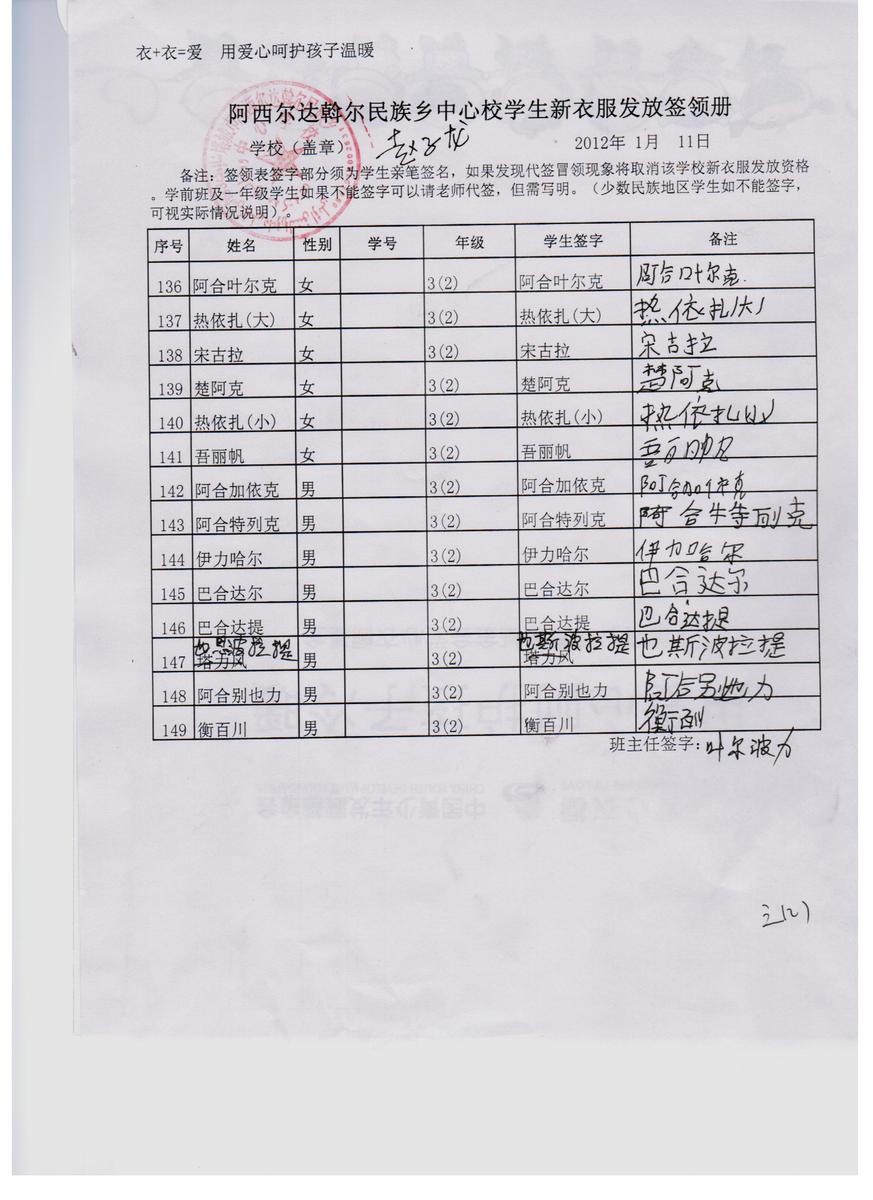 衣+衣=爱 用爱心呵护孩子温暖
阿西尔达斡尔民族乡中心校学生新衣服发放签领册
学校（盖章） 2012年 1月 11日
备注：签领表签字部分须为学生亲笔签名，如果发现代签冒领现象将取消该学校新衣服发放资格
。学前班及一年级学生如果不能签字可以请老师代签，但需写明。（少数民族地区学生如不能签字，
可视实际情况说明）。
序号 姓名 性别 学号 年级 学生签字 备注
136 阿合叶尔克 女 3(2) 阿合叶尔克 阿合叶尔克.
137 热依扎(大) 女 3(2) 热依扎(大) 热依扎(大)
138 宋古拉 女 3(2) 宋古拉 宋古拉
139 楚阿克 女 3(2) 楚阿克 楚阿克
140 热依扎(小) 女 3(2) 热依扎(小) 热依扎(小)
141 吾丽帆 女 3(2) 吾丽帆
142 阿合加依克 男 3(2) 阿合加依克 阿合加依克
143 阿合特列克 男 3(2) 阿合特列克 阿合特列克
144 伊力哈尔 男 3(2) 伊力哈尔 伊力哈尔
145 巴合达尔 男 3(2) 巴合达尔 巴合达尔
146 巴合达提 男 3(2) 巴合达提 巴合达提
也思波拉提 也斯波拉提
147 塔力风 男 3(2) 塔力风 也斯波拉提
148 阿合别也力 男 3(2) 阿合别也力 阿合别也力
149 衡百川 男 3(2) 衡百川
班主任签字：叶尔波力
三(2)